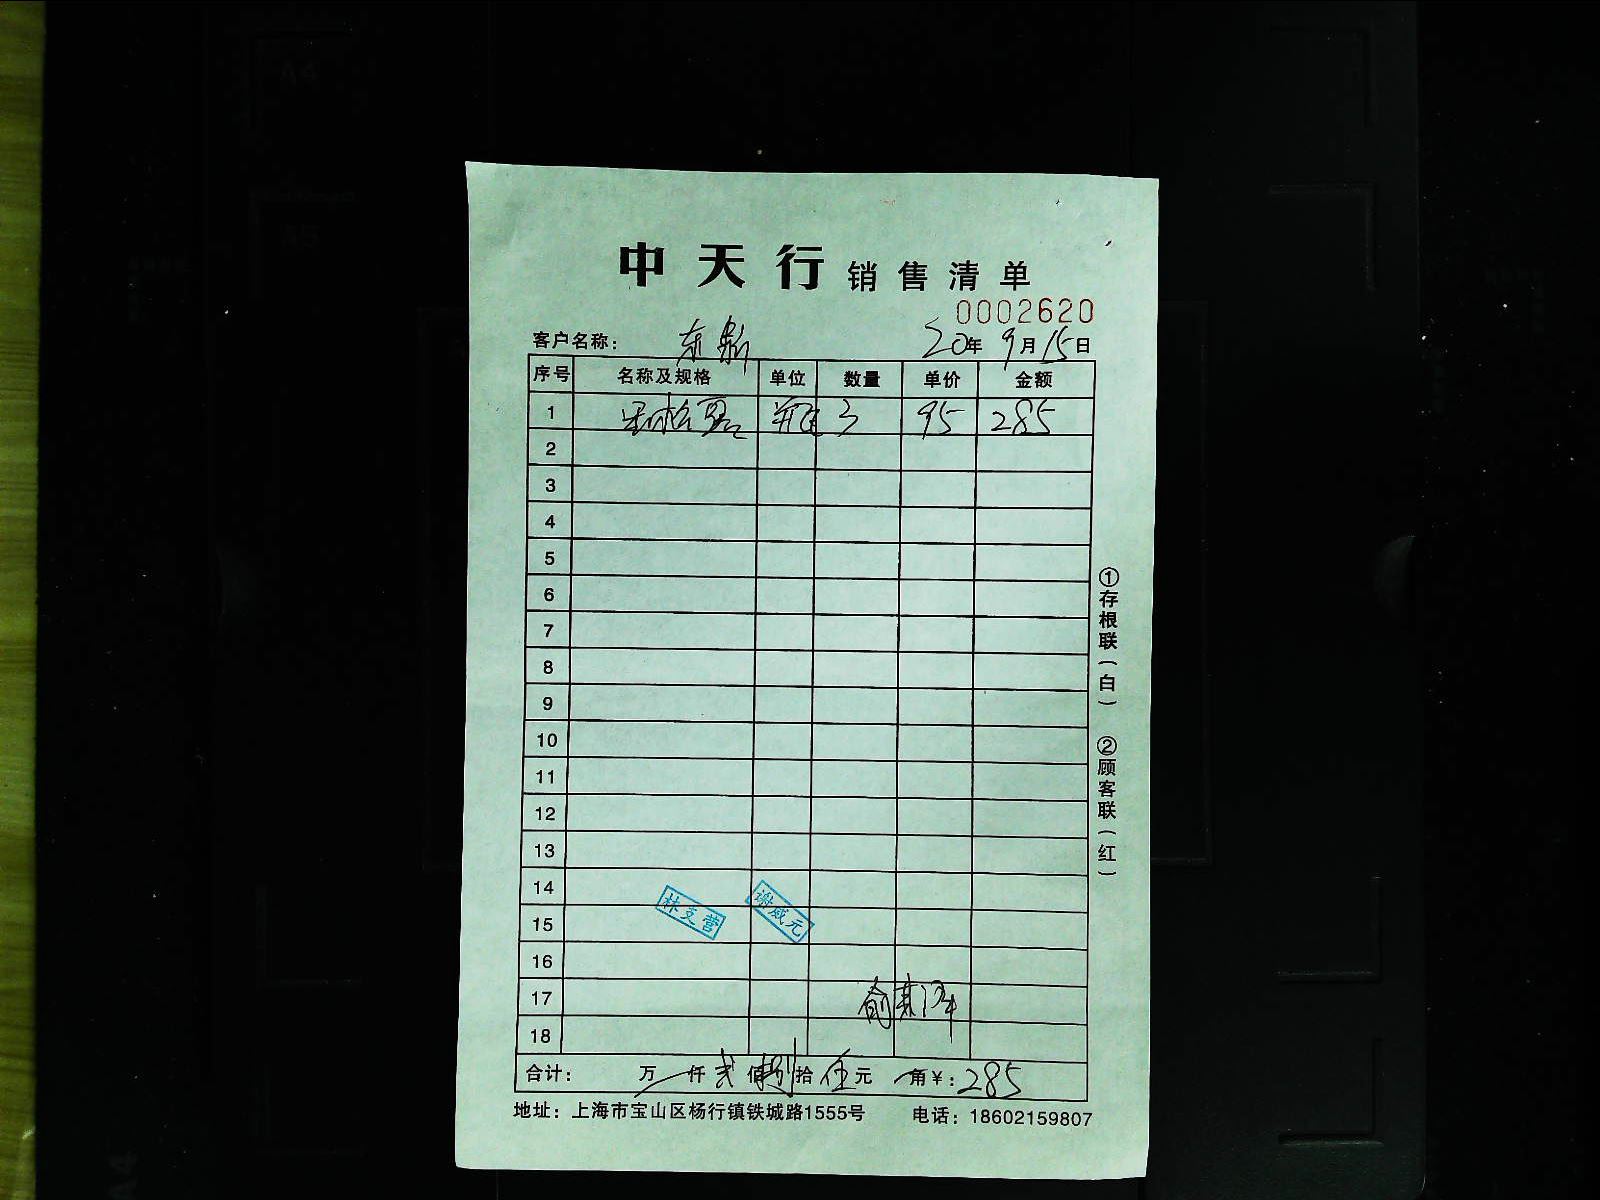 中天行 销售清单
0002620
客户名称： 东鼎 20年9月15日
序号 名称及规格 单位 数量 单价 金额
1 瓶 3 95 285
2
3
4
5
6
7
8
9
10
11
12
13
14
15
16
17
18
林支营
谢威元
合计： 万 仟 贰 佰 捌 拾 伍 元 角 ￥：285
地址：上海市宝山区杨行镇铁城路1555号 电话：18602159807
①存根联（白）
②顾客联（红）